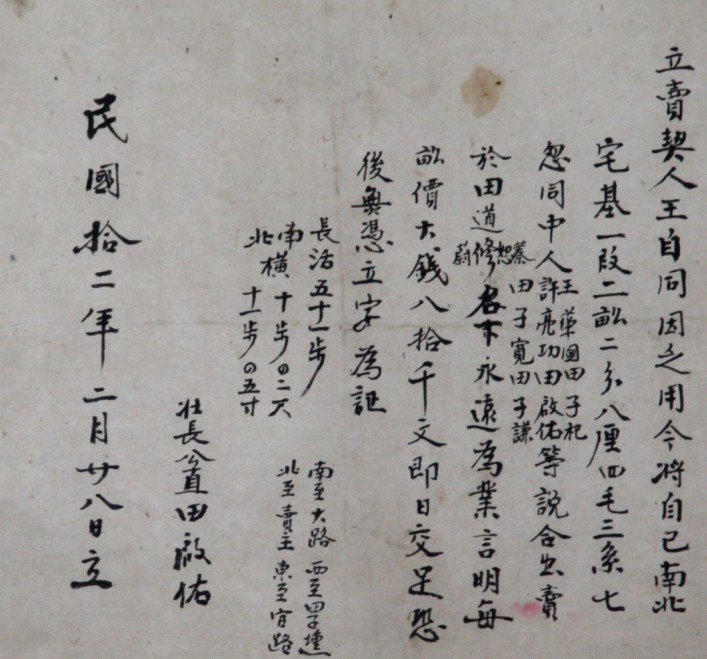 立賣契人王自同因乏用今將自己南北
宅基一段二畝二分八厘四毛三系七
忽同中人許亮功田啟佑等說合出賣
王華國田子祀
田子寬田子謙
於田道修名下永遠為業言明每
蔚 恕 蓁
畝價大錢八拾千文即日交足恐
後無憑立字為証
長活五十一步
南橫十步〇二尺
北 十一步〇五寸
南至大路 西至田子壎
北至賣主 東至官路
莊長公直田啟佑
民國拾二年二月廿八日立